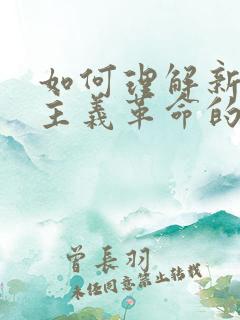 如何理解新
主义革命的
曾長羽
未经同意禁止转载